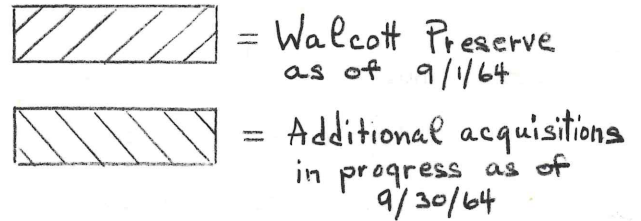 = Walcott Preserve
as of 9/1/64
= Additional acquisitions
in progress as of
9/30/64